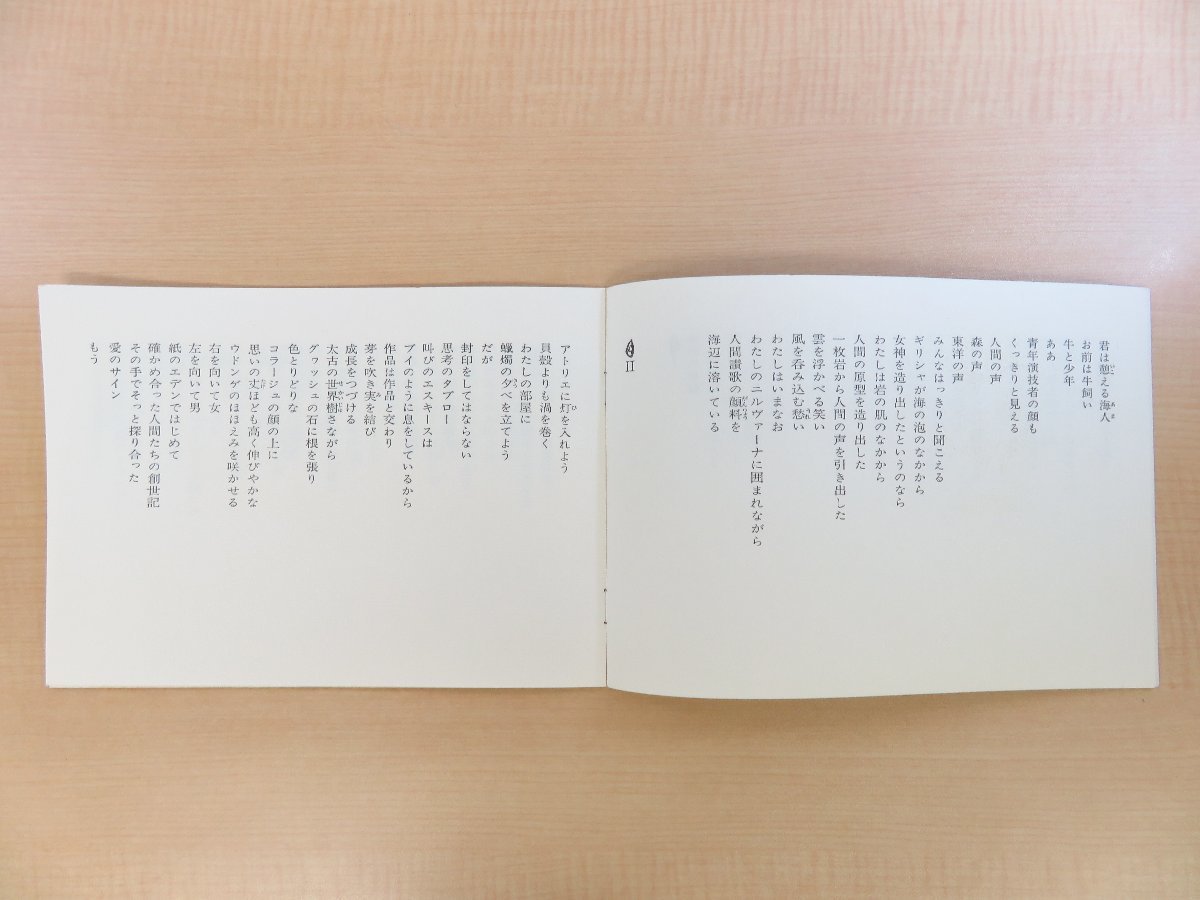 君は憩える海人
お前は牛飼い
牛と少年
ああ
青年演技者の顔も
くっきりと見える
人間の声
森の声
東洋の声
みんなはっきりと聞こえる
ギリシャが海の泡のなかから
女神を造り出したというのなら
わたしは岩の肌のなかから
人間の原型を造り出した
一枚岩から人間の声を引き出した
雲を浮かべる笑い
風を呑み込む愁い
わたしはいまなお
わたしのニルヴァーナに囲まれながら
人間讃歌の顔料を
海辺に溶いている
II
アトリエに灯を入れよう
貝殻よりも渦を巻く
わたしの部屋に
蠟燭の夕べを立てよう
だが
封印をしてはならない
思考のタブロー
叫びのエスキースは
ブイのように息をしているから
作品は作品と交わり
芽を吹き実を結び
成長をつづける
太古の世界樹さながら
グァッシュの石に根を張り
色とりどりな
コラージュの顔の上に
思いの丈ほども高く伸びやかな
ウドンゲのほほえみを咲かせる
右を向いて女
左を向いて男
紙のエデンではじめて
確かめ合った人間たちの創世記
その手でそっと探り合った
愛のサイン
もう